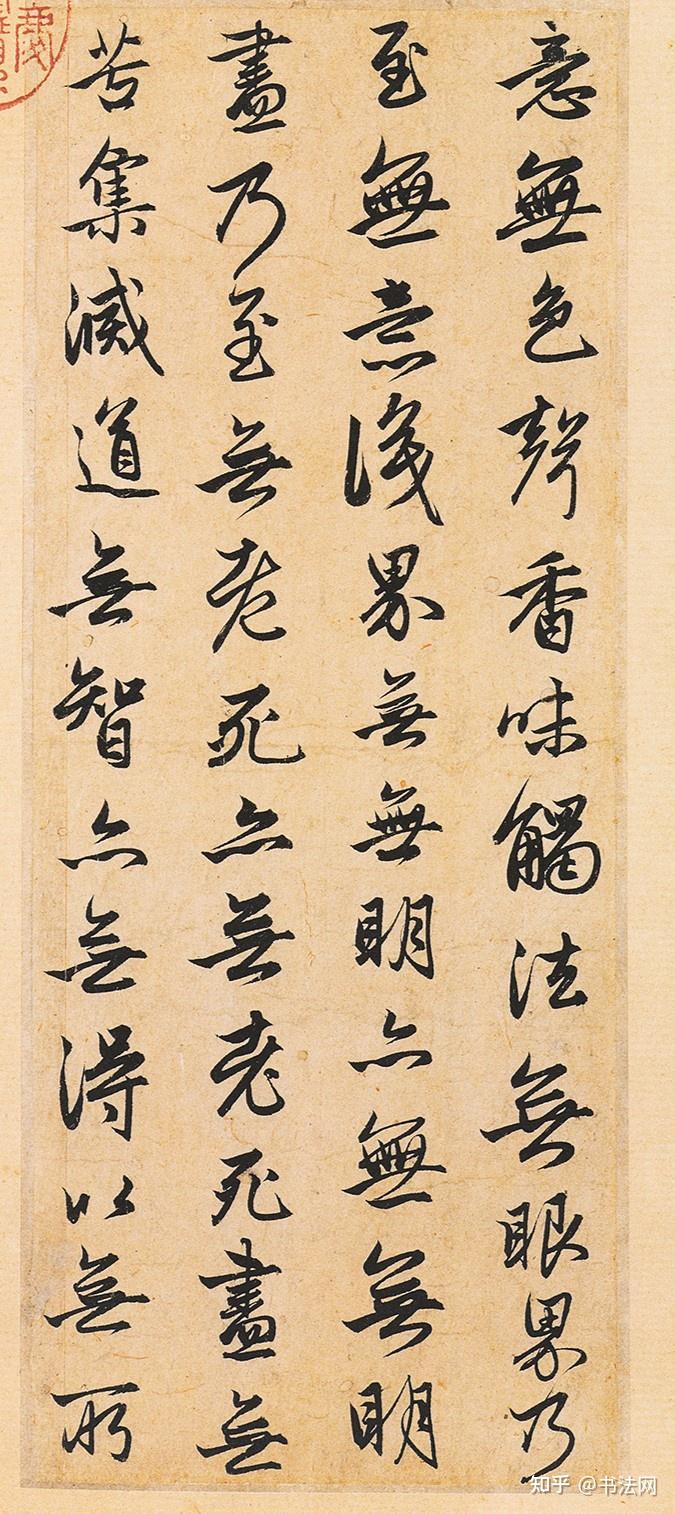 意無色聲香味觸法無眼界乃
至無意識界無無明亦無無明
盡乃至無老死亦無老死盡無
苦集滅道無智亦無得以無所
知乎 @书法网